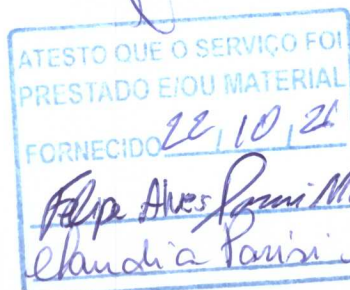 ATESTO QUE O SERVIÇO FOI
PRESTADO E/OU MATERIAL
FORNECIDO 22, 10, 21
Felipe Alves
Claudia Parisi